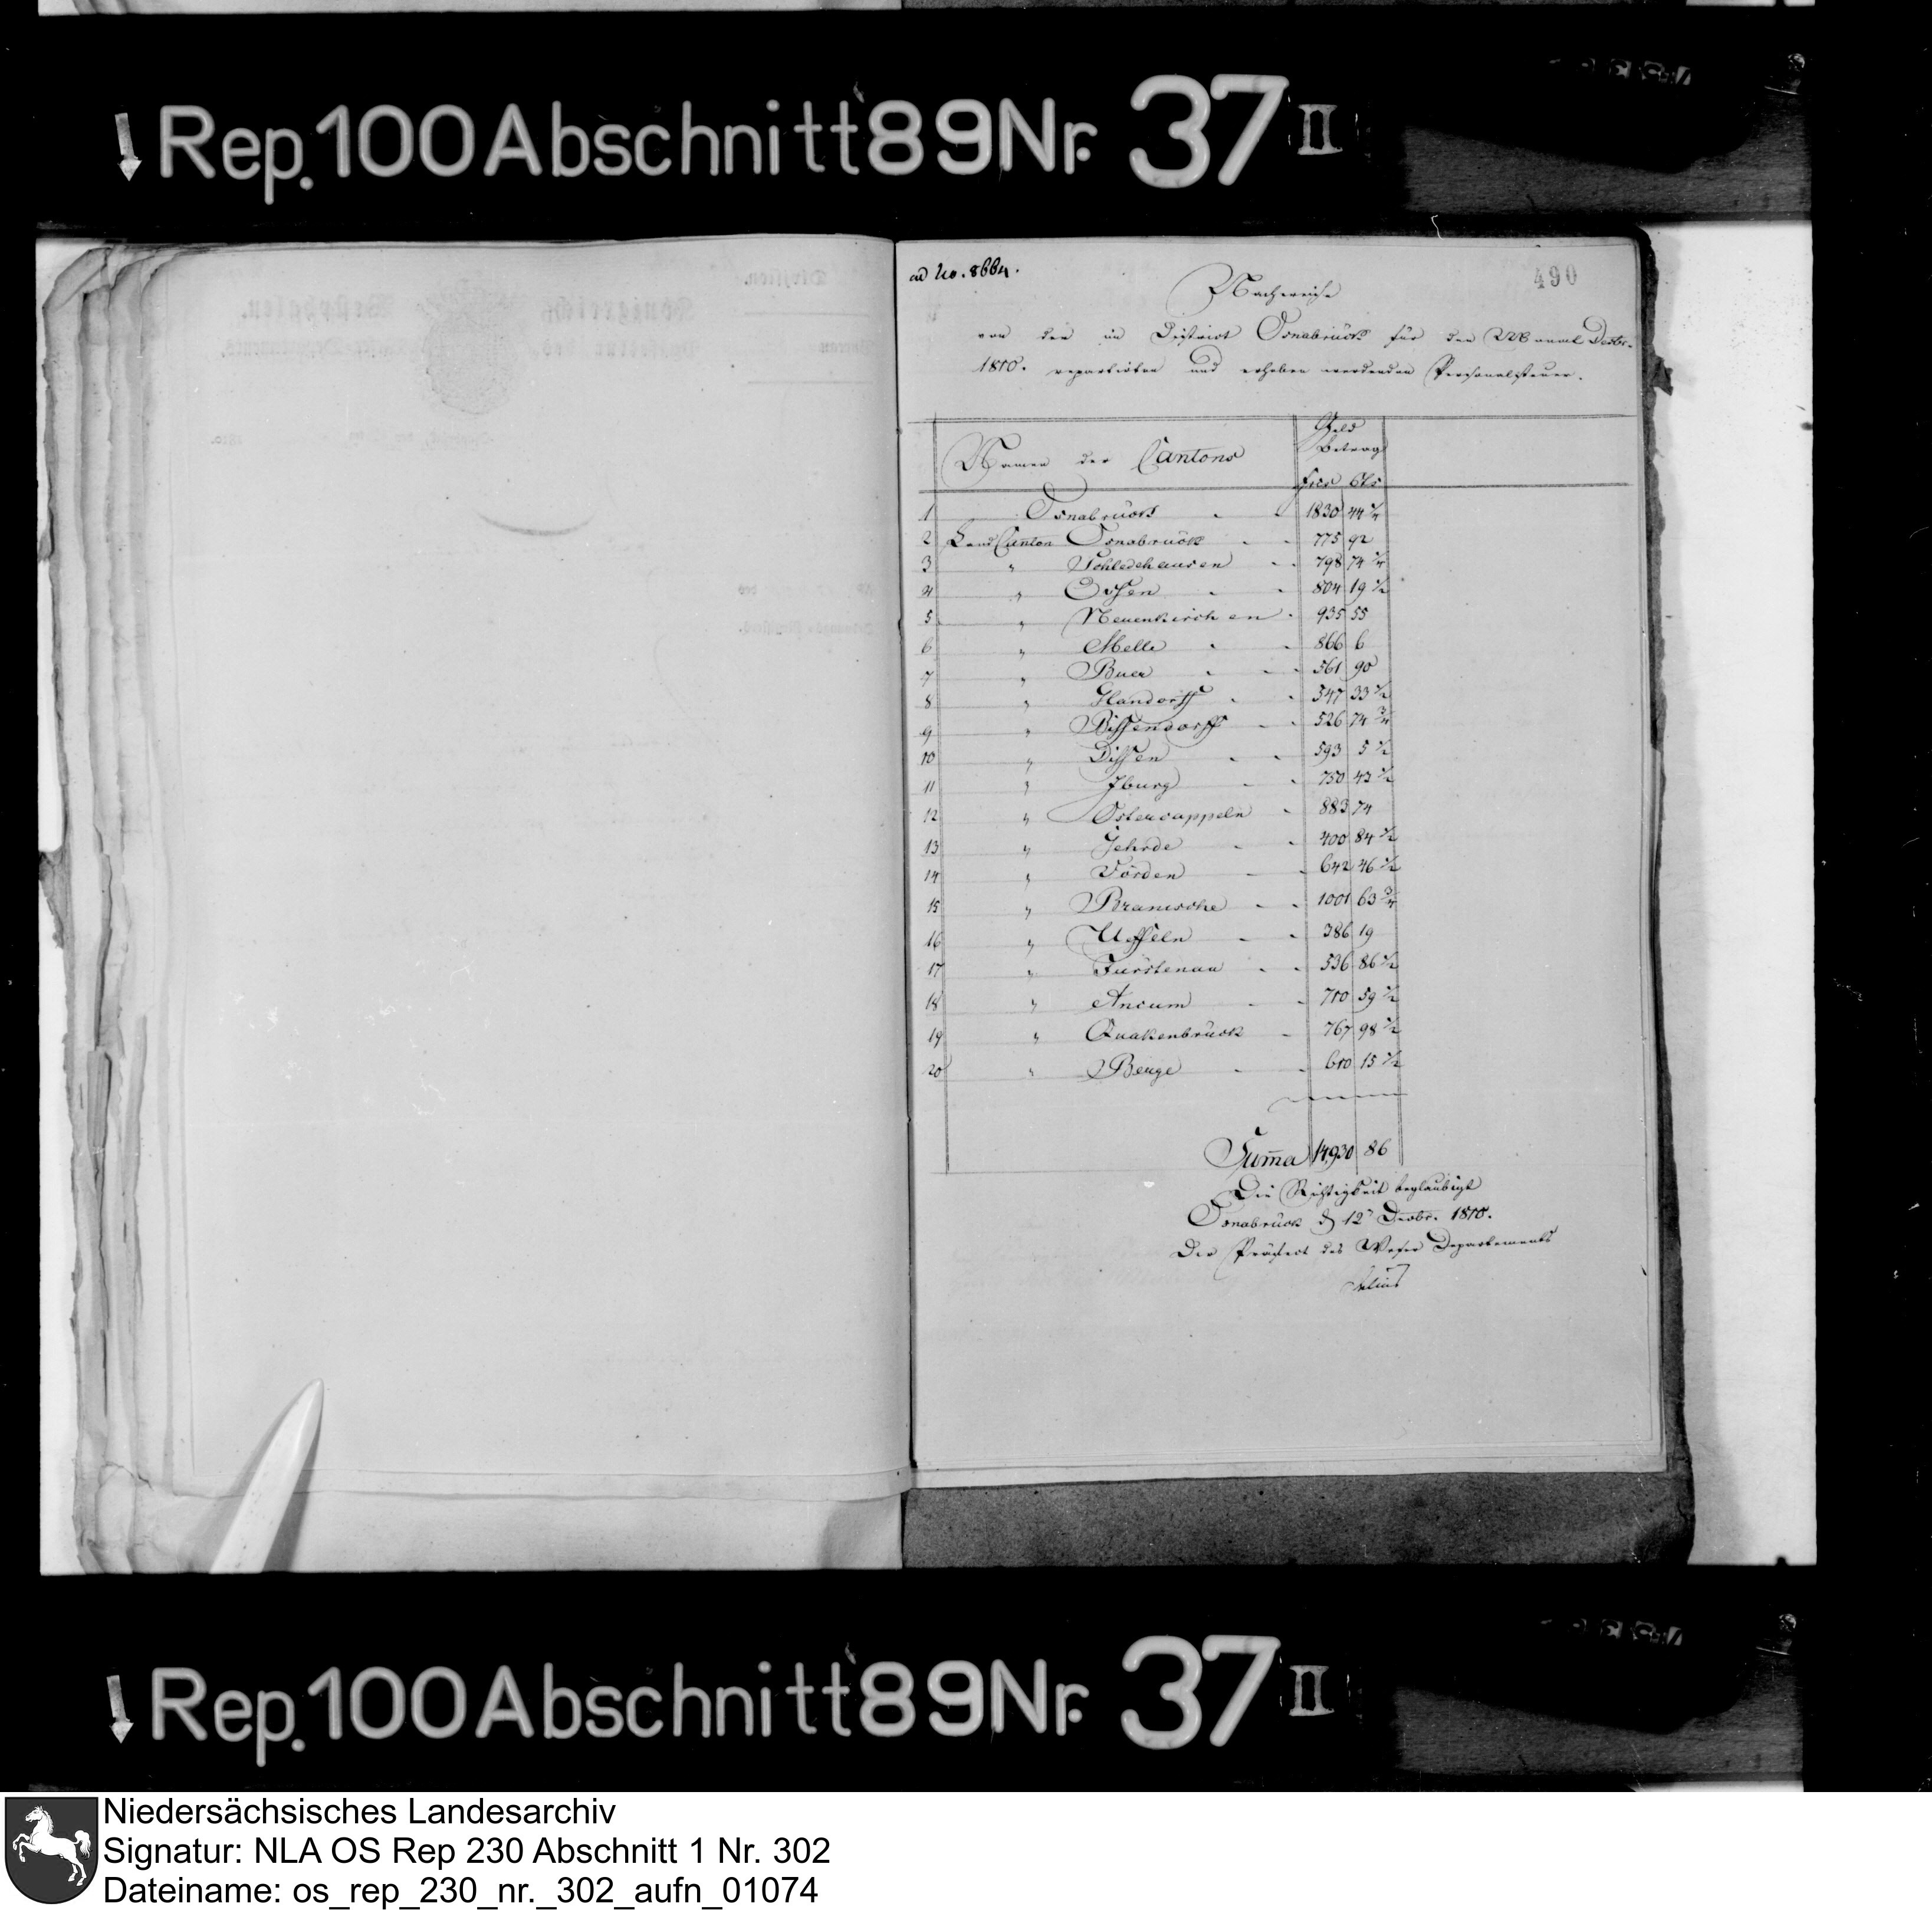 Rep. 100 Abschnitt 89 Nr. 37 II
ad No. 8664.
490
Nachweise
von der im District Osnabrück für den Monat Decbr.
1810. repartirten und erhoben werdenden Personalsteuer.
Namen der Cantons
Geld Betrag
frcs Cts
1 Osnabrück 1830 44 1/4
2 Land Canton Osnabrück 775 92
3 " Schledehausen 798 74 1/4
4 " Essen 804 19 1/2
5 " Neuenkirchen 935 55
6 " Melle 866 6
7 " Buer 561 90
8 " Glandorff 547 33 1/2
9 " Bissendorff 526 74 3/4
10 " Dissen 593 5 1/2
11 " Iburg 750 43 1/2
12 " Ostercappeln 883 74
13 " Gehrde 400 84 1/2
14 " Vörden 642 46 1/2
15 " Bramsche 1001 63 3/4
16 " Uffeln 386 19
17 " Fürstenau 536 86 1/2
18 " Ancum 710 59 1/2
19 " Quakenbrück 767 98 1/2
20 " Berge 610 15 1/2
Summa 14930 86
Die Richtigkeit beglaubigt
Osnabrück d 12 Decbr. 1810.
Der Präfect des Weser Departements
Rep. 100 Abschnitt 89 Nr. 37 II
Niedersächsisches Landesarchiv
Signatur: NLA OS Rep 230 Abschnitt 1 Nr. 302
Dateiname: os_rep_230_nr._302_aufn_01074